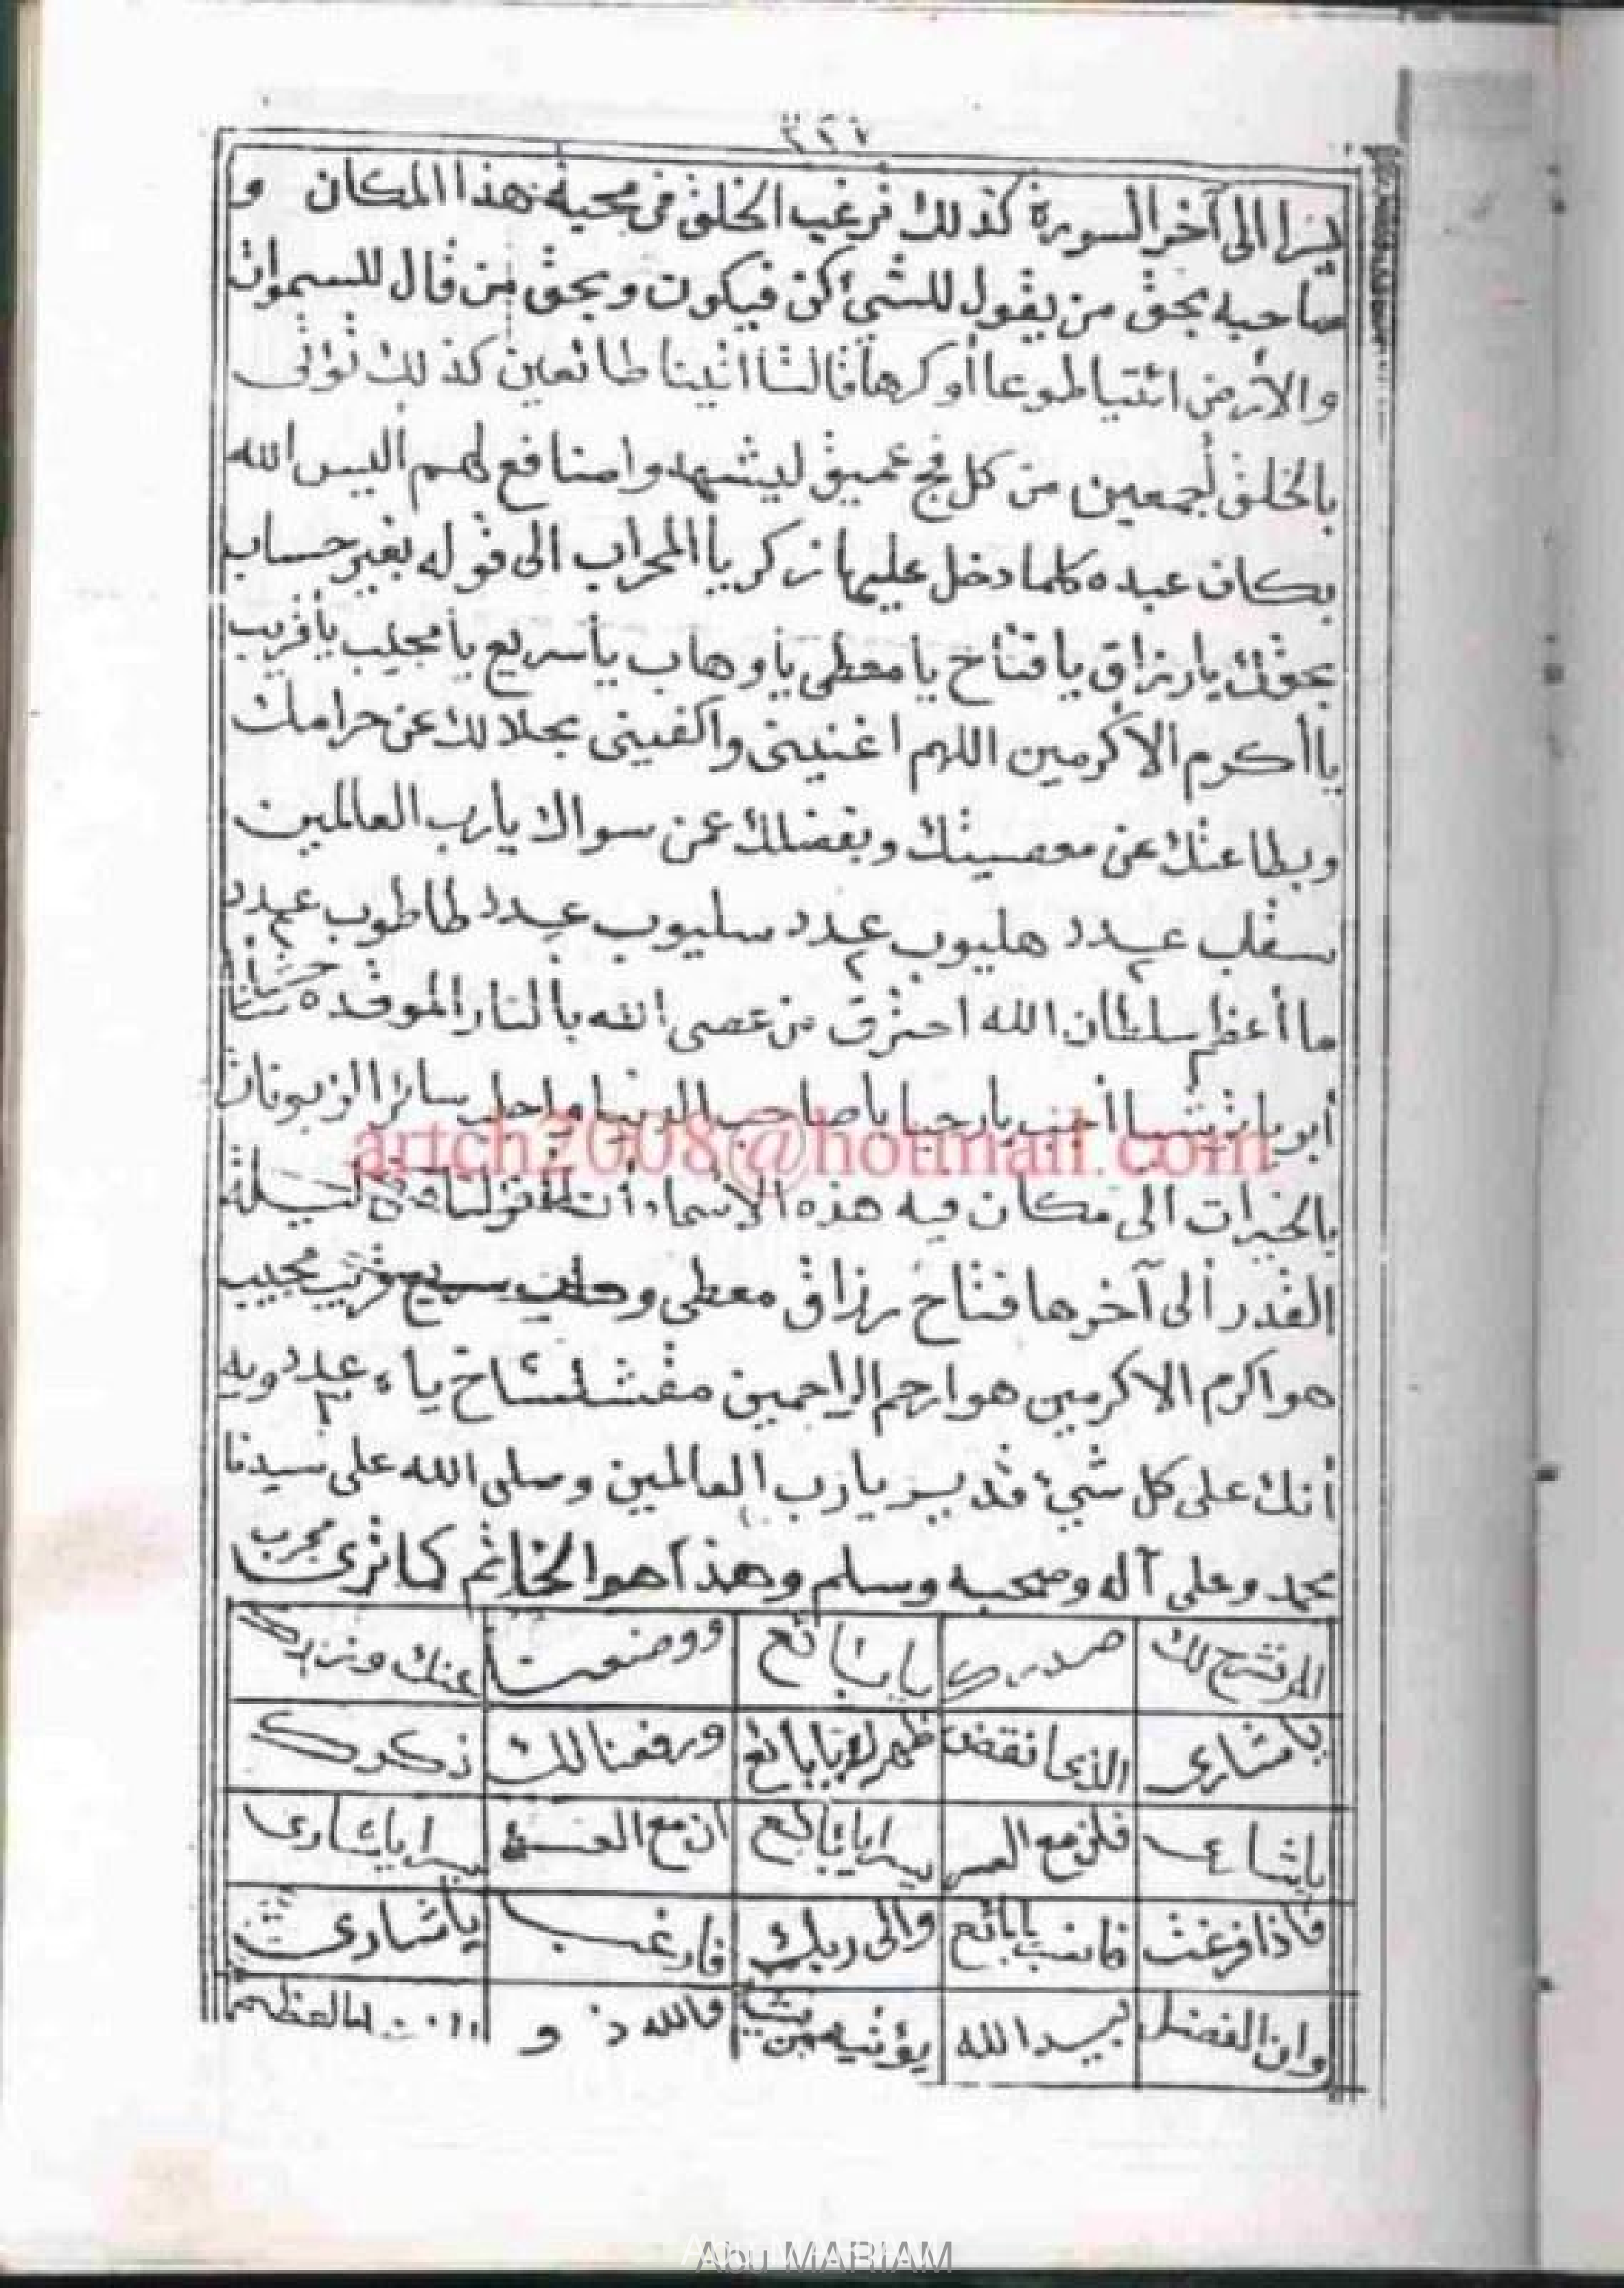 ٢٢٧
يرا الى آخر السورة كذلك ترغب الخلق في محبة هذا المكان و
صاحبه بحق من يقول للشيء كن فيكون وبحق من قال للسموات
والأرض ائتيا طوعا أو كرها قالتا اتينا طائعين كذلك تؤتى
بالخلق أجمعين من كل فج عميق ليشهدوا منافع لهم أليس الله
بكاف عبده كلما دخل عليها زكريا المحراب الى قوله بغير حساب
بحقك يا رزاق يا فتاح يا معطى يا وهاب يا سريع يا مجيب يا قريب
يا أكرم الأكرمين اللهم اغنينى واكفينى بحلالك عن حرامك
وبطاعتك عن معصيتك وبفضلك عمن سواك يا رب العالمين
سقلب عدد ٢ هليوب عدد ٢ سليوب عدد طاطوب عدد ٢
ما أعظم سلطان الله احترق من عصى الله بالنار الموقدة
أجب يا صاحب الدنيا واجلب سائر الزبونات
بالخيرات الى مكان فيه هذه الاسماء أنا أنزلناه فى ليلة
القدر الى آخرها فتاح رزاق معطى سريع قريب مجيب
هو اكرم الاكرمين هو ارحم الراحمين ياه عدد وبه
أنك على كل شيء قدير يا رب العالمين وصلى الله على سيدنا
محمد وعلى آله وصحبه وسلم وهذا هو الخاتم كما ترى مجرب
الم نشرح لك صدرك يا بائع ووضعنا عنك وزرك
يا شارى الذى انقض ظهرك يا بائع ورفعنا لك ذكرك
يا شارى فان مع العسر يسرا يا بائع ان مع العسر يسرا يا شارى
فاذا فرغت فانصب يا بائع والى ربك فارغب يا شارى
وان الفضل بيد الله يؤتيه من يشاء والله ذو العظيم
artch2008@hotmail.com
Abu MARIAM